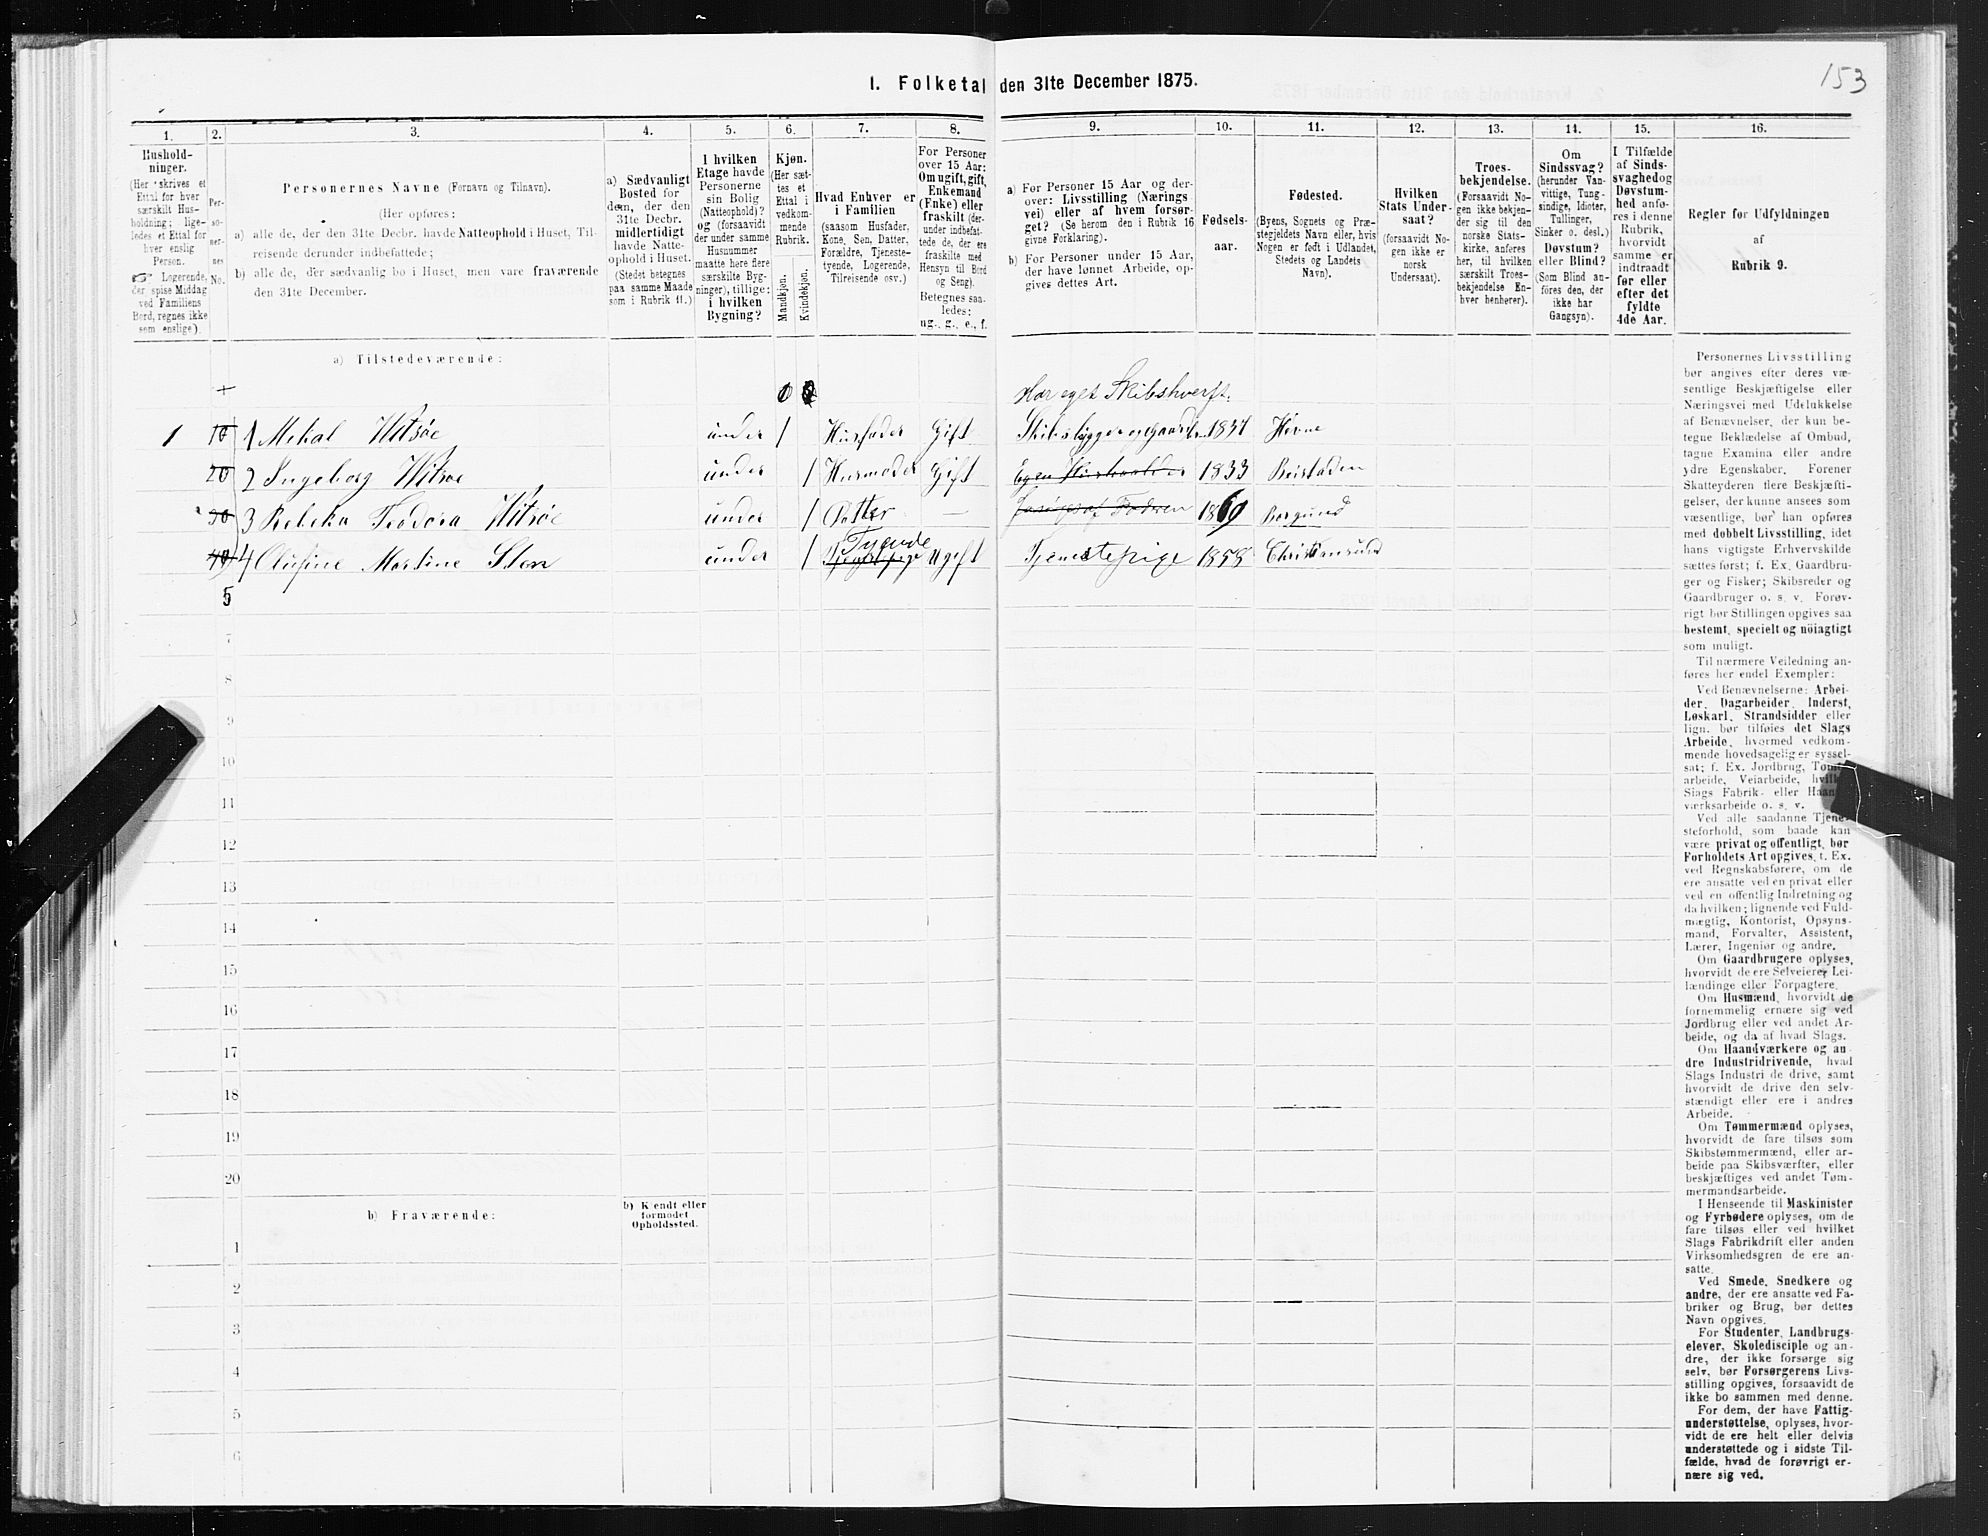 153
I. Folketal den 31te December 1875.
1.
Hushold-
ninger.
(Her skrives et
Ettal for hver
særskilt Hus-
holdning; lige-
ledes et Ettal for
hver enslig
Person.
☞ Logerende,
der spise Middag
ved Familiens
Bord, regnes ikke
som enslige).
2.
Per-
so-
ner-
nes
No.
3.
Personernes Navne (Fornavn og Tilnavn).
(Her opføres:
a) alle de, der den 31te Decbr. havde Natteophold i Huset, Til-
reisende derunder indbefattede;
b) alle de, der sædvanlig bo i Huset, men vare fraværende
den 31te December.
4.
a) Sædvanligt
Bosted for
dem, der den
31te Decbr.
midlertidigt
havde Natte-
ophold i Huset.
(Stedet betegnes
paa samme Maade
som i Rubrik 11.)
5.
I hvilken
Etage havde
Personerne
sin Bolig
(Natteophold)?
og (forsaavidt
der under samme
Husnummer
maatte høre flere
særskilte Byg-
ninger), tillige:
i hvilken
Bygning?
6.
Kjøn.
(Her sæt-
tes et
Ettal i
vedkom-
mende
Rubrik.
Mandkjøn.
Kvindekjøn.
7.
Hvad Enhver er
i Familien
(saasom Husfader,
Kone, Søn, Datter,
Forældre, Tjeneste-
tyende, Logerende,
Tilreisende osv.)
8.
For Personer
over 15 Aar:
Om ugift, gift,
Enkemand
(Enke) eller
fraskilt (der-
under indbefat-
tede de, der ere
fraskilte med
Hensyn til Bord
og Seng).
Betegnes saa-
ledes:
ug., g., e., f.
9.
a) For Personer 15 Aar og der-
over: Livsstilling (Nærings
vei) eller af hvem forsør-
get? (Se herom den i Rubrik 16
givne Forklaring).
b) For Personer under 15 Aar,
der have lønnet Arbeide, op-
gives dettes Art.
10.
Fødsels-
aar.
11.
Fødested.
(Byens, Sognets og Præ-
stegjeldets Navn eller, hvis
Nogen er født i Udlandet,
Stedets og Landets
Navn).
12.
Hvilken
Stats Under-
saat?
(forsaavidt No-
gen ikke er
norsk
Undersaat).
13.
Troes-
bekjendelse.
(Forsaavidt No-
gen ikke bekjen-
der sig til den
norske Stats-
kirke, anføres
her, til hvilken
særskilt Troes-
bekjendelse En-
hver henhører).
14.
Om
Sindssvag?
(herunder Van-
vittige, Tung-
sindige, Idioter,
Tullinger,
Sinker o. desl.)
Døvstum?
eller Blind?
(Som Blind an-
föres den, der
ikke har
Gangsyn).
15.
I Tilfælde
af Sinds-
svaghed og
Døvstum-
hed anfø-
res i denne
Rubrik,
hvorvidt
samme er
indtraadt
før eller
efter det
fyldte
4de Aar.
16.
Regler for Udfyldningen
af
Rubrik 9.
a) Tilstedeværende:
Har eget Skibshverft.
1 1 Mekal Hitsøe under 1 Husfader Gift 1834 Hevne
2 Ingeborg Hitsøe under 1 Husmoder Gift 1833 Beistaden
3 Rebeka Teodora Hitsøe under 1 Datter — 1869 Borgund
Tyende
4 Olufine Martine Sten under 1 Ugift Tjenestepige 1858 Christiansund
5
7
8
9
10
11
12
13
14
15
16
17
18
19
20
b) Fraværende:
b) Kjendt eller
formodet
Opholdssted.
1
2
3
4
5
6
Personernes Livsstilling
bør angives efter deres væ-
sentlige Beskjæftigelse eller
Næringsvei med Udelukkelse
af Benævnelser, der kun be-
tegne Beklædelse af Ombud,
tagne Examina eller andre
ydre Egenskaber. Forener
Skatteyderen flere Beskjæfti-
gelser, der kunne ansees som
væsentlige, bør han opføres
med dobbelt Livsstilling, idet
hans vigtigste Erhvervskilde
sættes først; f. Ex. Gaardbru-
ger og Fisker; Skibsreder og
Gaardbruger o. s. v. Forøv-
rigt bør Stillingen opgives saa
bestemt, specielt og nöiagtigt
som muligt.
Til nærmere Veiledning an-
føres her endel Exempler:
Ved Benævnelserne: Arbei-
der, Dagarbeider, Inderst,
Løskarl, Strandsidder eller
lign. bør tilføies det Slags
Arbeide, hvormed vedkom-
mende hovedsagelig er syssel-
sat; f. Ex. Jordbrug, Tømm-
arbeide, Veiarbeide, hvilk
Slags Fabrik- eller Haan
værksarbeide o. s. v.
Ved alle saadanne Tjene-
steforhold, som baade kan
være privat og offentligt, bør
Forholdets Art opgives, f. Ex.
ved Regnskabsførere, om de
ere ansatte ved en privat eller
ved en offentlig Indretning og
da hvilken; lignende ved Fuld-
mægtig, Kontorist, Opsyns-
mand, Forvalter, Assistent,
Lærer, Ingeniør og andre.
Om Gaardbrugere oplyses,
hvorvidt de ere Selveiere, Lei-
lændinge eller Forpagtere.
Om Husmænd, hvorvidt de
fornemmelig ernære sig ved
Jordbrug eller ved andet Ar-
beide, og da af hvad Slags.
Om Haandværkere og an-
dre Industridrivende, hvad
Slags Industri de drive, samt
hvorvidt de drive den selv-
stændigt eller ere i andres
Arbeide.
Om Tømmermænd oplyses,
hvorvidt de fare tilsøs som
Skibstømmermænd, eller ar-
beide paa Skibsværfter, eller
beskjæftiges ved andet Tøm-
mermandsarbeide.
I Henseende til Maskinister
og Fyrbødere oplyses, om de
fare tilsøs eller ved hvilket
Slags Fabrikdrift eller anden
Virksomhedsgren de ere an-
satte.
Ved Smede, Snedkere og
andre, der ere ansatte ved Fa-
briker og Brug, bør dettes
Navn opgives.
For Studenter, Landbrugs-
elever, Skoledisciple og an-
dre, der ikke forsørge sig
selv, bør Forsørgerens Livs-
stilling opgives, forsaavidt de
ikke bo sammen med denne.
For dem, der have Fattig-
understøttelse, oplyses, hvor-
vidt de ere helt eller delvis
understøttede og i sidste Til-
fælde, hvad de forøvrigt er-
nære sig ved.